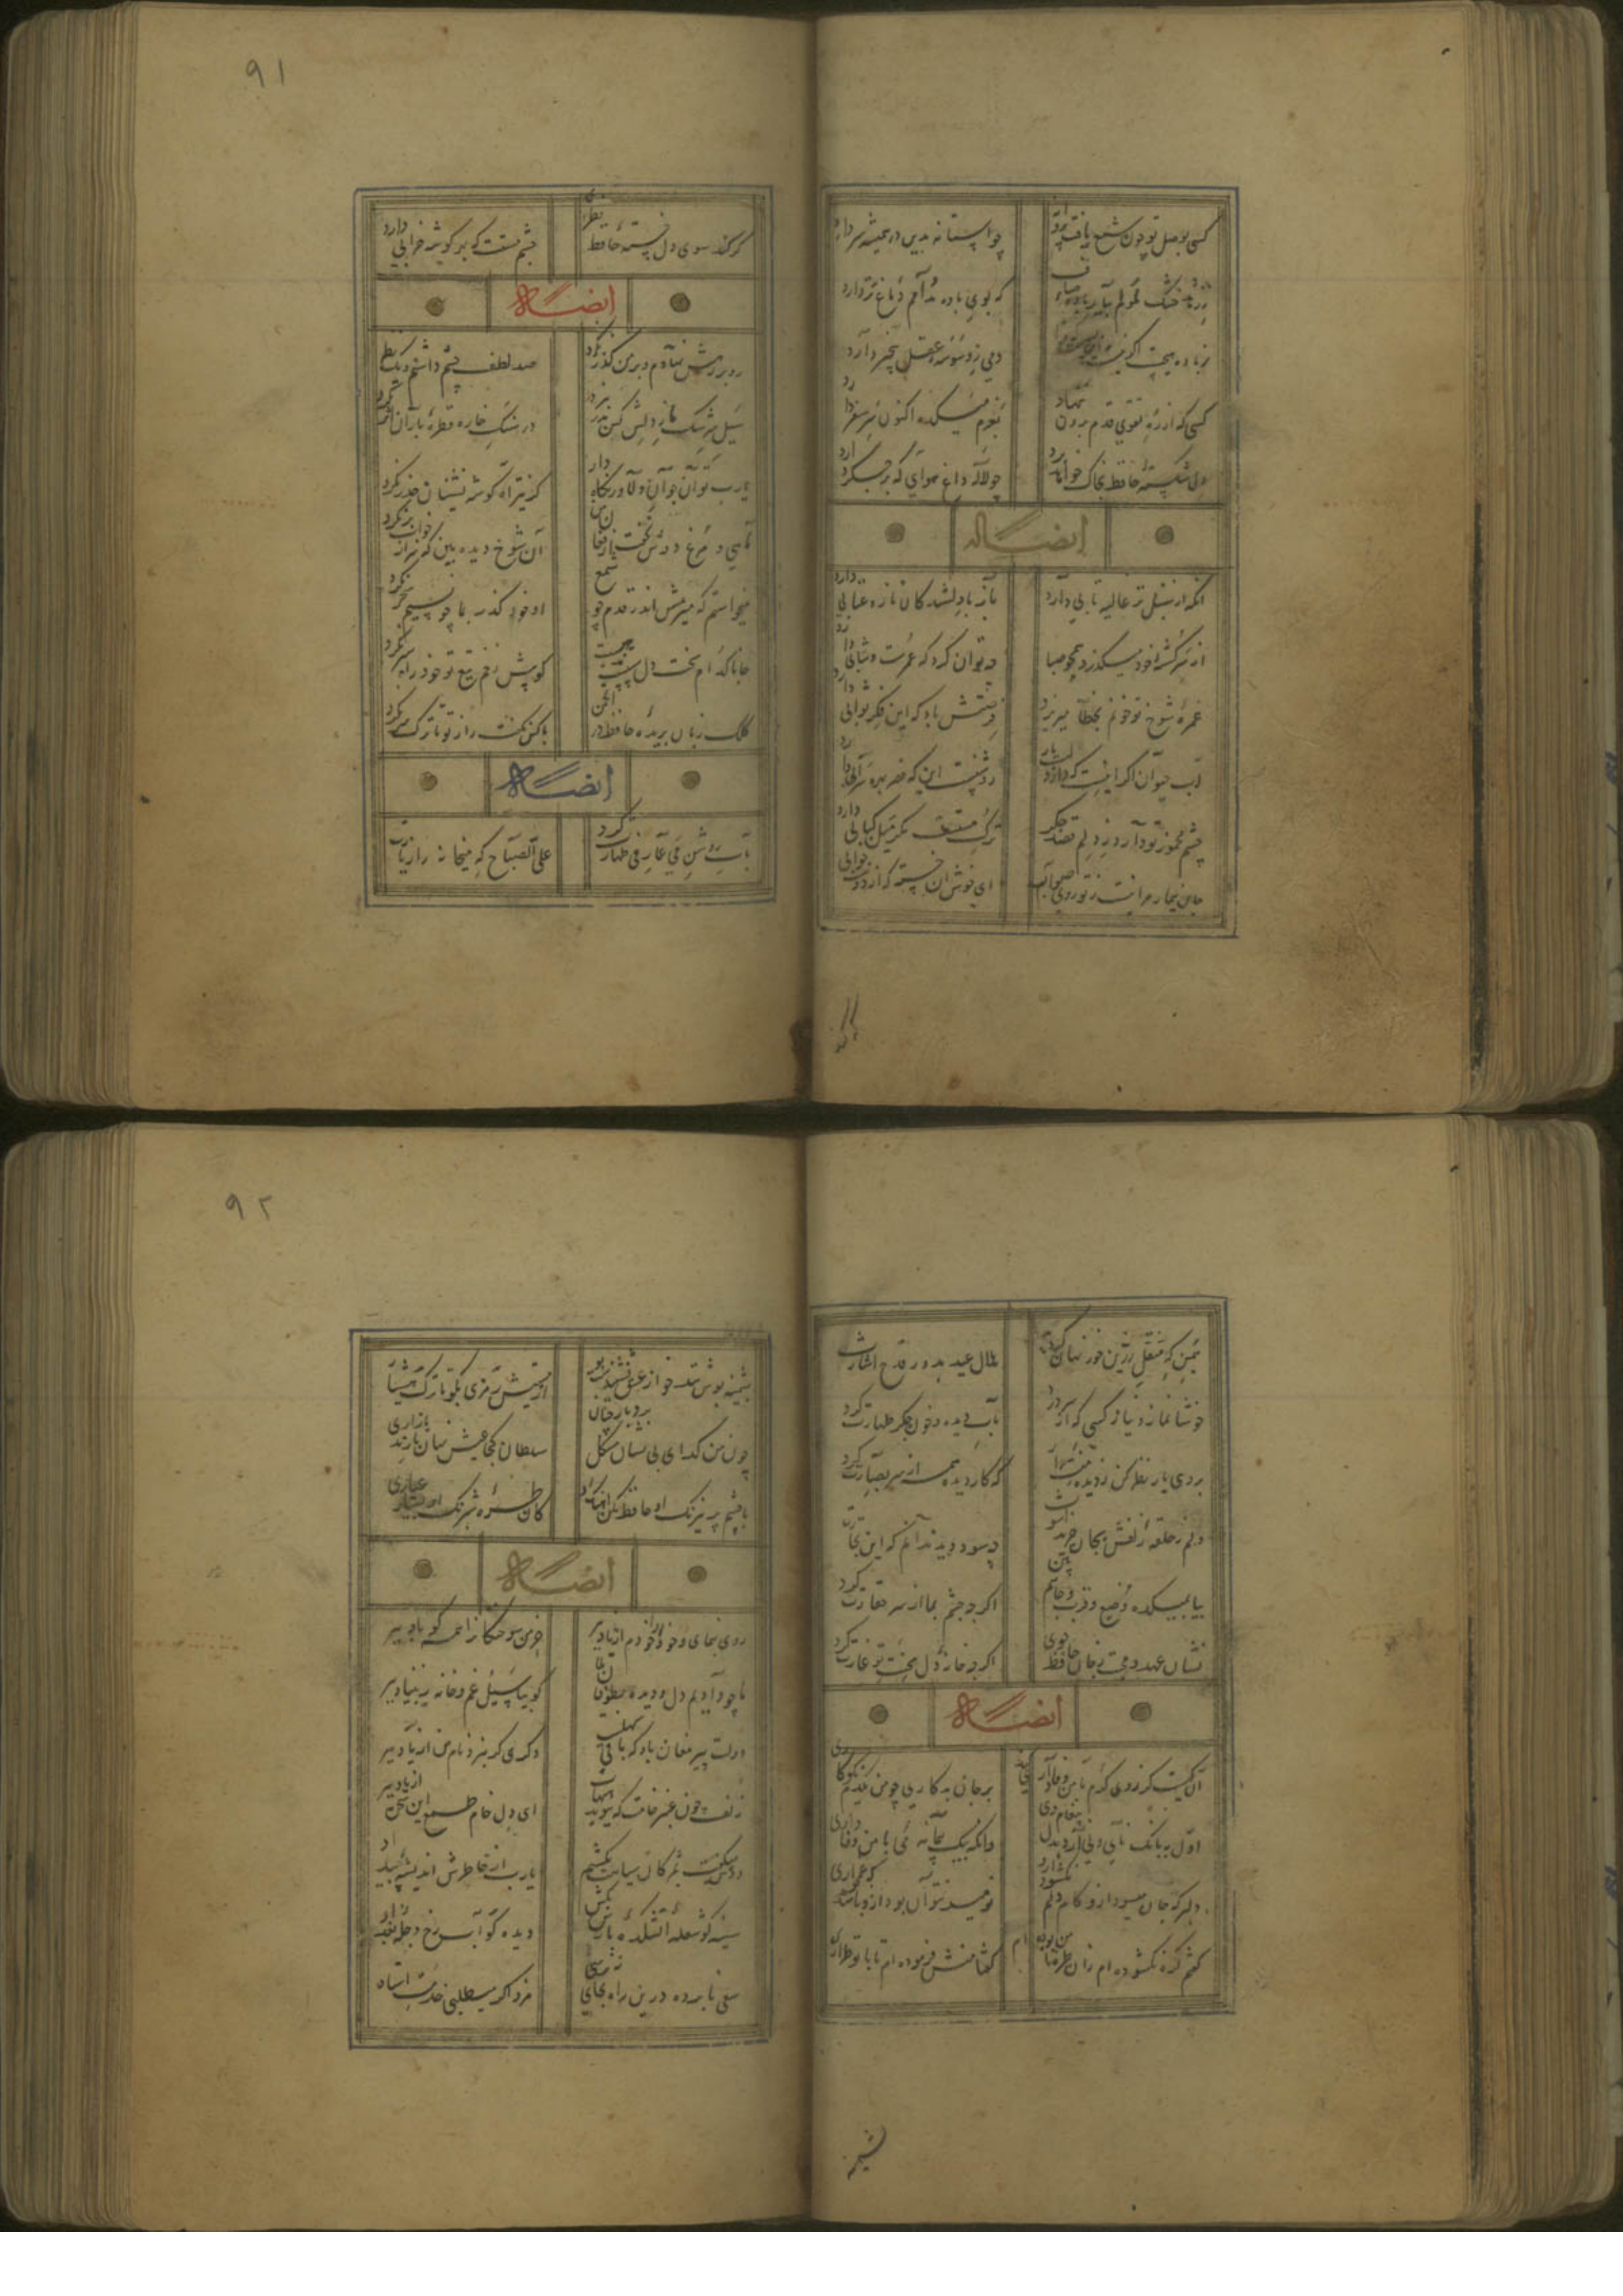 کسی بوصل تو چون شمع یافت پروانه
چو آستانه بدین در همیشه سر دارد
ز زهد خشک ملولم بیار باده ناب
که بوی باده مدامم دماغ تر دارد
ز باده هیچت اگر نیست این نه بس
دمی ز وسوسه عقل بیخبر دارد
کسی که از ره تقوی قدم برون ننهاد
بعزم میکده اکنون سر سفر دارد
دل شکسته حافظ بخاک خواهد برد
چو لاله داغ هوای که بر جگر دارد
ایضاً له
آنکه از سنبل تر غالیه تابی دارد
باز با دلشدگان ناز و عتابی دارد
از سر کشته خود میگذرد همچو صبا
چه توان کرد که عمرست و شتابی دارد
غمزه شوخ تو خونم بخطا میریزد
فرصتش باد که این فکر صوابی دارد
آب حیوان اگر اینست که دارد لب یار
روشنست این که خضر بهره سرابی دارد
چشم مخمور تو دارد ز دلم قصد جگر
ترک مستست مگر میل کبابی دارد
جان بیمار مرا نیست ز تو روی سؤال
ای خوش آن خسته که از دوست جوابی
۹۱
کی کند سوی دل خسته حافظ نظری
چشم مستت که بهر گوشه خرابی دارد
ایضاً له
رو بر رهش نهادم و بر من گذر نکرد
صد لطف چشم داشتم و یک نظر نکرد
سیل سرشک ما ز دلش کین بدر نبرد
در سنگ خاره قطره باران اثر نکرد
یارب تو آن جوان دلاور نگاه دار
کز تیر آه گوشه نشینان حذر نکرد
ماهی و مرغ دوش نخفت از فغان من
آن شوخ دیده بین که سر از خواب بر نکرد
میخواستم که میرمش اندر قدم چو شمع
او خود گذر بما چو نسیم سحر نکرد
جانا کدام سخت دل
کو پیش زخم تیغ تو خود را سپر نکرد
کلک زبان بریده حافظ در انجمن
با کس نگفت راز تو تا ترک سر نکرد
ایضاً له
بآب روشن می عارفی طهارت کرد
علی الصباح که میخانه را زیارت
همین که ساغر زرین خور نهان گردید
هلال عید بدور قدح اشارت
خوشا نماز و نیاز کسی که از سر درد
بآب دیده و خون جگر طهارت کرد
بروی یار نظر کن ز دیده منت دار
که کار دیده همه از سر بصارت کرد
دلم ز حلقه زلفش بجان خرید آشوب
چه سود دید ندانم که این تجارت
بیا بمیکده وضع و قرب و جاهم بین
اگر چه چشم بما از سر حقارت کرد
نشان عهد و محبت ز جان حافظ جوی
اگر چه خانه دل محنت تو غارت کرد
ایضاً له
آن کیست کز روی کرم با من وفاداری کند
بر جای بدکاری چو من یکدم نکوکاری
اول ببانک نای و نی آرد بدل پیغام وی
وانگه بیک پیمانه می با من وفاداری
دلبر که جان میسود ازو کام دلم نگشود ازو
نومید نتوان بود ازو باشد که غمخواری
گفتم گره نگشوده ام زان طره تا من بوده ام
گفتا منش فرموده ام تا با تو طراری
پشمینه
۹۲
پشمینه پوش تندخو از عشق نشنیدست بو
از مستیش رمزی بگو تا ترک هشیاری
چون من گدای بی نشان مشکل بود یاری چنان
سلطان کجا عیش نهان با رند بازاری
با چشم پر نیرنگ او حافظ مکن آهنگ او
کان طره شبرنگ او بسیار عیاری
ایضاً له
روی بنمای و وجود خودم از یاد ببر
خرمن سوختگانرا همه گو باد ببر
ما چو دادیم دل و دیده بطوفان بلا
گو بیا سیل غم و خانه ز بنیاد ببر
دولت پیر مغان باد که باقی سهلست
دگری گو برو و نام من از یاد ببر
زلف چون عنبر خامت که ببوید هیهات
ای دل خام طمع این سخن از یاد ببر
دوش میگفت بمژگان سیاهت بکشم
یارب از خاطرش اندیشه بیداد ببر
سینه گو شعله آتشکده پارس بکش
دیده گو آب رخ دجله بغداد
سعی نابرده درین راه بجایی نرسی
مزد اگر میطلبی خدمت استاد